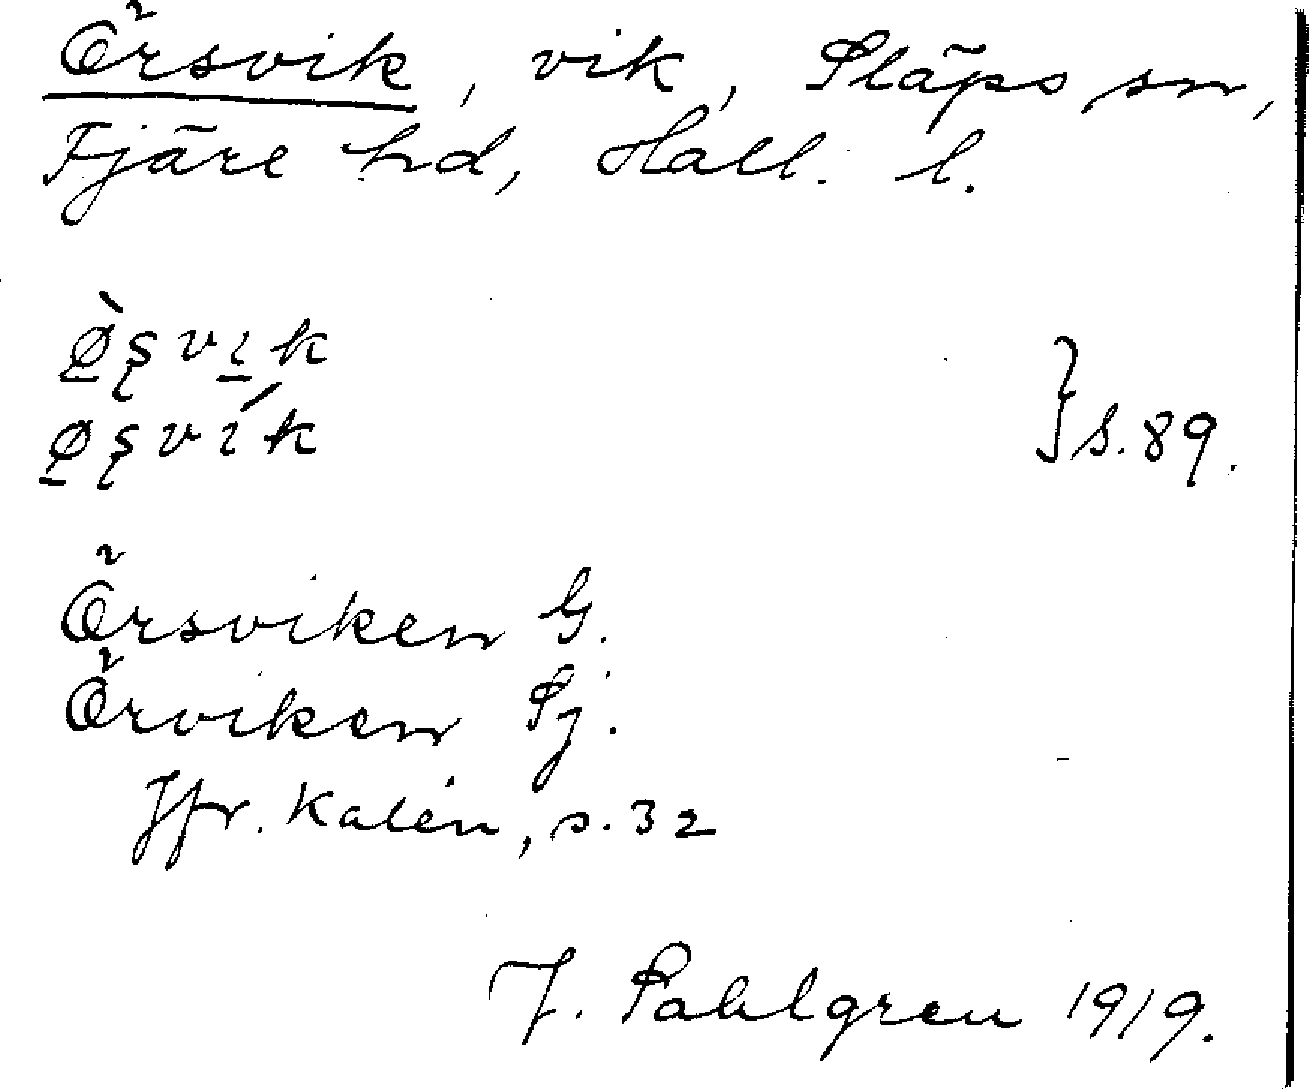 Örsvik, vik, Släps sn,
Fjäre hd, Hall. l.
ø̠̀ʂvi̠k
ø̠ʂvík } s. 89.
Örsviken G.
Örviken Sj.
Jfr. Kalén, s. 32
J. Sahlgren 1919.